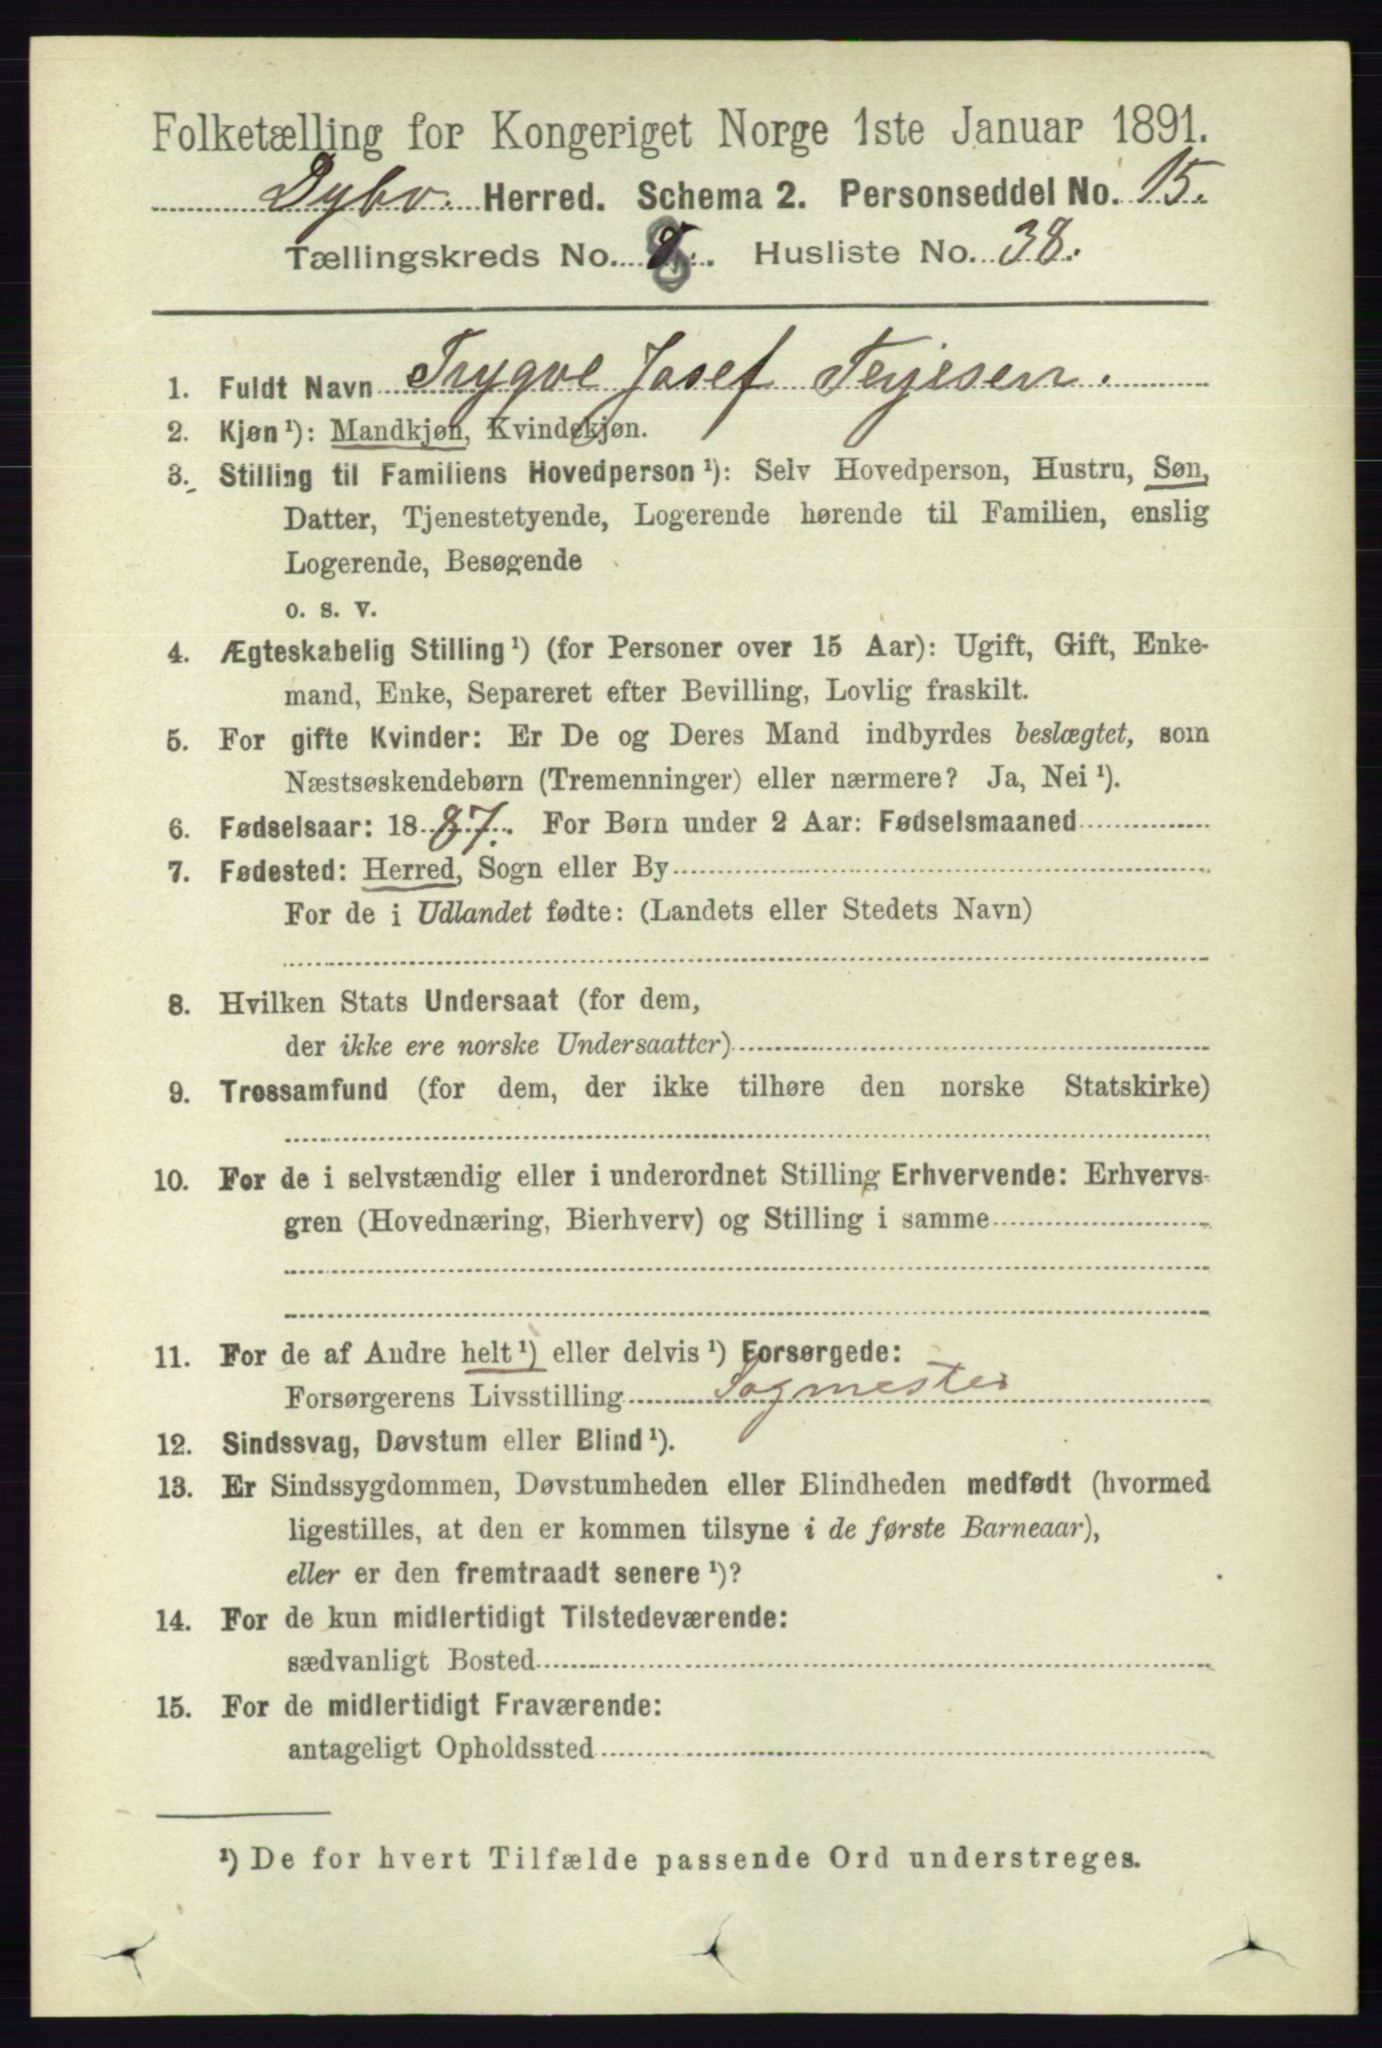 Folketælling for Kongeriget Norge 1ste Januar 1891.
Dybv. Herred. Schema 2. Personseddel No. 15.
Tællingskreds No. 8. Husliste No. 38.
1. Fuldt Navn Trygve Josef Terjesen.
2. Kjøn¹): Mandkjøn, Kvindekjøn.
3. Stilling til Familiens Hovedperson¹): Selv Hovedperson, Hustru, Søn,
Datter, Tjenestetyende, Logerende hørende til Familien, enslig
Logerende, Besøgende
o. s. v.
4. Ægteskabelig Stilling¹) (for Personer over 15 Aar): Ugift, Gift, Enke-
mand, Enke, Separeret efter Bevilling, Lovlig fraskilt.
5. For gifte Kvinder: Er De og Deres Mand indbyrdes beslægtet, som
Næstsøskendebørn (Tremenninger) eller nærmere? Ja, Nei¹).
6. Fødselsaar: 1887. For Børn under 2 Aar: Fødselsmaaned
7. Fødested: Herred, Sogn eller By
For de i Udlandet fødte: (Landets eller Stedets Navn)
8. Hvilken Stats Undersaat (for dem,
der ikke ere norske Undersaatter)
9. Trossamfund (for dem, der ikke tilhøre den norske Statskirke)
10. For de i selvstændig eller i underordnet Stilling Erhvervende: Erhvervs-
gren (Hovednæring, Bierhverv) og Stilling i samme
11. For de af Andre helt¹) eller delvis¹) Forsørgede:
Forsørgerens Livsstilling Sagmester
12. Sindssvag, Døvstum eller Blind¹).
13. Er Sindssygdommen, Døvstumheden eller Blindheden medfødt (hvormed
ligestilles, at den er kommen tilsyne i de første Barneaar),
eller er den fremtraadt senere¹)?
14. For de kun midlertidigt Tilstedeværende:
sædvanligt Bosted
15. For de midlertidigt Fraværende:
antageligt Opholdssted
¹) De for hvert Tilfælde passende Ord understreges.